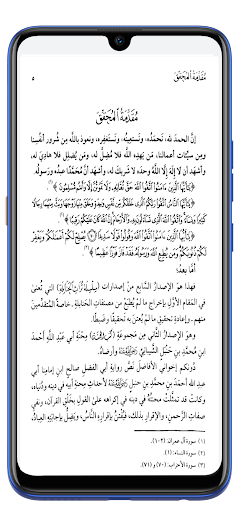 مُقَدِّمَةُ المُحَقِّقِ
٥
مُقَدِّمَةُ المُحَقِّقِ
إنَّ الحمدَ لله، نَحمَدُه، ونَستعِينُه، ونَستغفِره، ونعوذ باللَّهِ مِن شُرورِ أنفُسِنا
ومِن سيِّئات أعمالنا، مَن يَهدِه اللَّه فلا مُضِلَّ له، ومَن يُضلِل فلا هاديَ له،
وأشهد أن لا إله إلَّا اللَّه وحدَه لا شريك له، وأشهد أنَّ محمَّدًا عبدُه ورسولُه.
﴿يَا أَيُّهَا الَّذِينَ ءَامَنُوا اتَّقُوا اللَّهَ حَقَّ تُقَاتِهِ وَلَا تَمُوتُنَّ إِلَّا وَأَنتُم مُّسْلِمُونَ﴾(١)
﴿يَا أَيُّهَا النَّاسُ اتَّقُوا رَبَّكُمُ الَّذِي خَلَقَكُم مِّن نَّفْسٍ وَاحِدَةٍ وَخَلَقَ مِنْهَا زَوْجَهَا وَبَثَّ مِنْهُمَا رِجَالًا
كَثِيرًا وَنِسَاءً وَاتَّقُوا اللَّهَ الَّذِي تَسَاءَلُونَ بِهِ وَالْأَرْحَامَ إِنَّ اللَّهَ كَانَ عَلَيْكُمْ رَقِيبًا﴾(٢)
﴿يَا أَيُّهَا الَّذِينَ ءَامَنُوا اتَّقُوا اللَّهَ وَقُولُوا قَوْلًا سَدِيدًا يُصْلِحْ لَكُمْ أَعْمَالَكُمْ وَيَغْفِرْ
لَكُمْ ذُنُوبَكُمْ وَمَن يُطِعِ اللَّهَ وَرَسُولَهُ فَقَدْ فَازَ فَوْزًا عَظِيمًا﴾(٣)
أمَّا بعدُ؛
فهذا هوَ الإصدارُ السَّابع مِنْ إصدارات التي تُعْنَىٰ
في المقام الأوَّل بإخراجِ ما لم يُطْبَع مِن مصنَّفاتِ الحنابلةِ - خاصةً المتقدِّمين
منهم - وإعادةِ تحقيقِ ما لم يُعتَن به تحقيقًا وضبطًا.
وهو الإصدارُ الثَّاني مِن مجموعةِ مِحنَةِ أبي عَبْدِ اللَّهِ أَحْمَدَ
ابنِ مُحمَّدِ بنِ حَنبلٍ الشَّيبانيِّ وأرضاه.
دُونَكم إخواني الأفاضلَ نَصَّ روايةِ أبي الفَضلِ صالحٍ ابنِ إمامِنا أبي
عبدِ اللَّه أحمدَ بنِ محمَّدِ بنِ حنبلٍ لأحداثِ محنةِ أبيه في دينه ودُنياه،
وكانت قد تمثَّلَتْ محنتُه في دينِه في إكراهِه علىٰ القولِ بخَلْقِ القرآنِ، ونفيِ
صفاتِ الرَّحمنِ، والإقرارِ بذلك، فيُفتَنُ بإقراره النَّاسُ، ويَضِلُّ بإجابتِه العِبادُ،
(١) سورة آل عمران: (١٠٢).
(٢) سورة النساء: (١).
(٣) سورة الأحزاب: (٧٠) و(٧١).